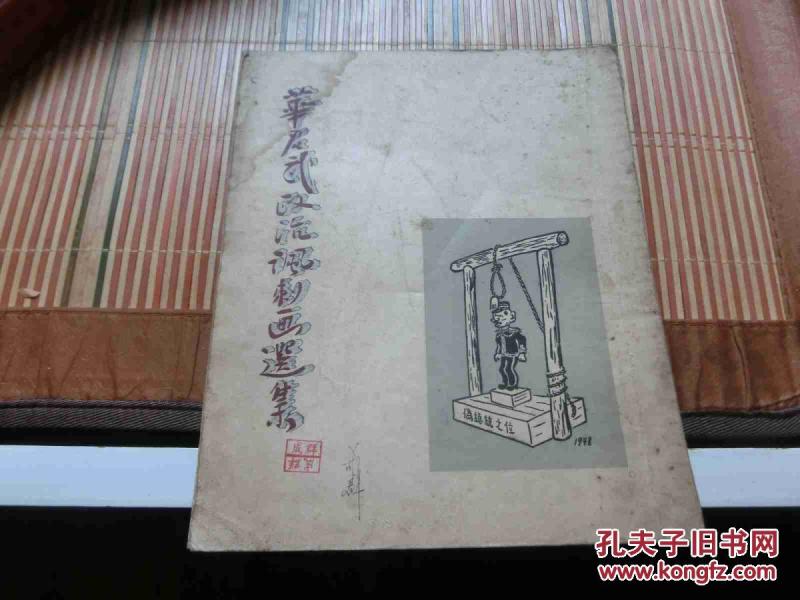 華君武政治諷刺画選集
偽總統之位
1948
孔夫子旧书网
www.kongfz.com